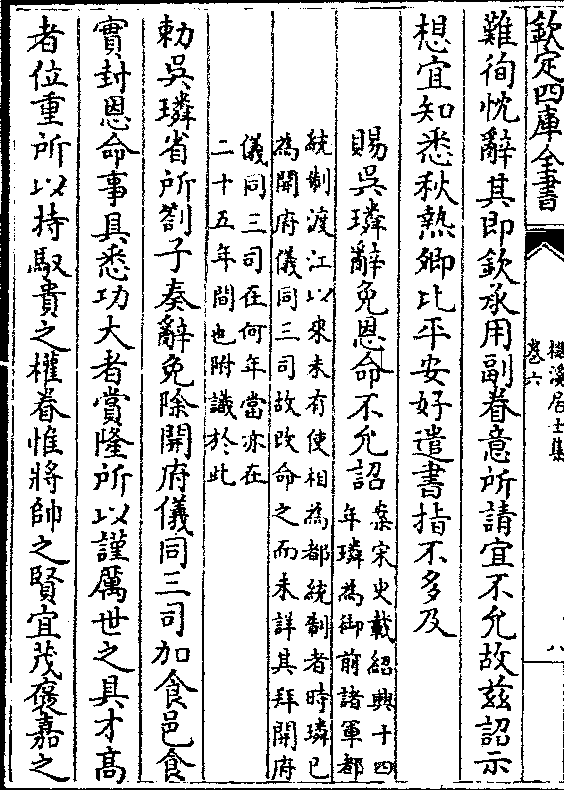 欽定四庫全書
樵溪居士集
卷六
八
難徇忱辭其即欽承用副眷意所請宜不允故兹詔示
想宜知悉秋熱卿比平安好遣書指不多及
賜吳璘辭免恩命不允詔
案宋史載紹興十四
年璘為御前諸軍都
統制渡江以來未有使相為都統制者時璘已
為開府儀同三司故改命之而未詳其拜開府
儀同三司在何年當亦在
二十五年間也附識於此
勅吳璘省所劄子奏辭免除開府儀同三司加食邑食
實封恩命事具悉功大者賞隆所以謹厲世之具才高
者位重所以持馭貴之權眷惟將帥之賢宜茂褒嘉之